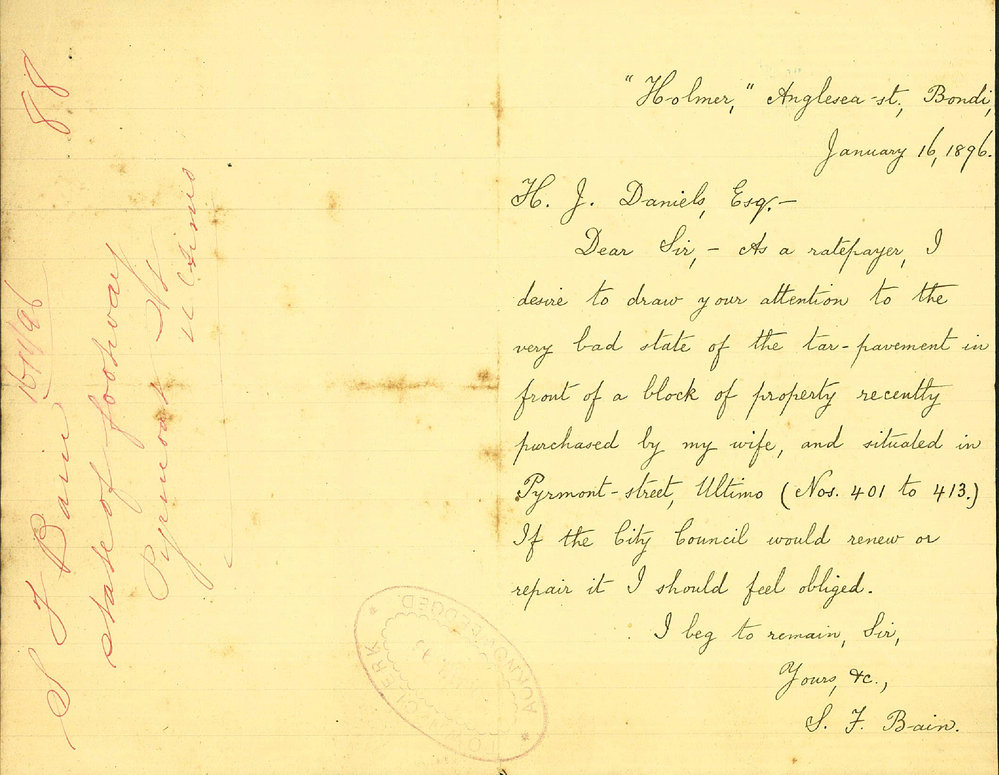 88
S F Bain 16/1/96
state of footway
Pyrmont St
Ultimo
"Holmer," Anglesea-st., Bondi,
January 16, 1896.
H. J. Daniels, Esq.—
Dear Sir,— As a ratepayer, I
desire to draw your attention to the
very bad state of the tar-pavement in
front of a block of property recently
purchased by my wife, and situated in
Pyrmont-street, Ultimo (Nos. 401 to 413.)
If the City Council would renew or
repair it I should feel obliged.
I beg to remain, Sir,
Yours, &c.,
S. F. Bain.
TOWN CLERK
ACKNOWLEDGED.